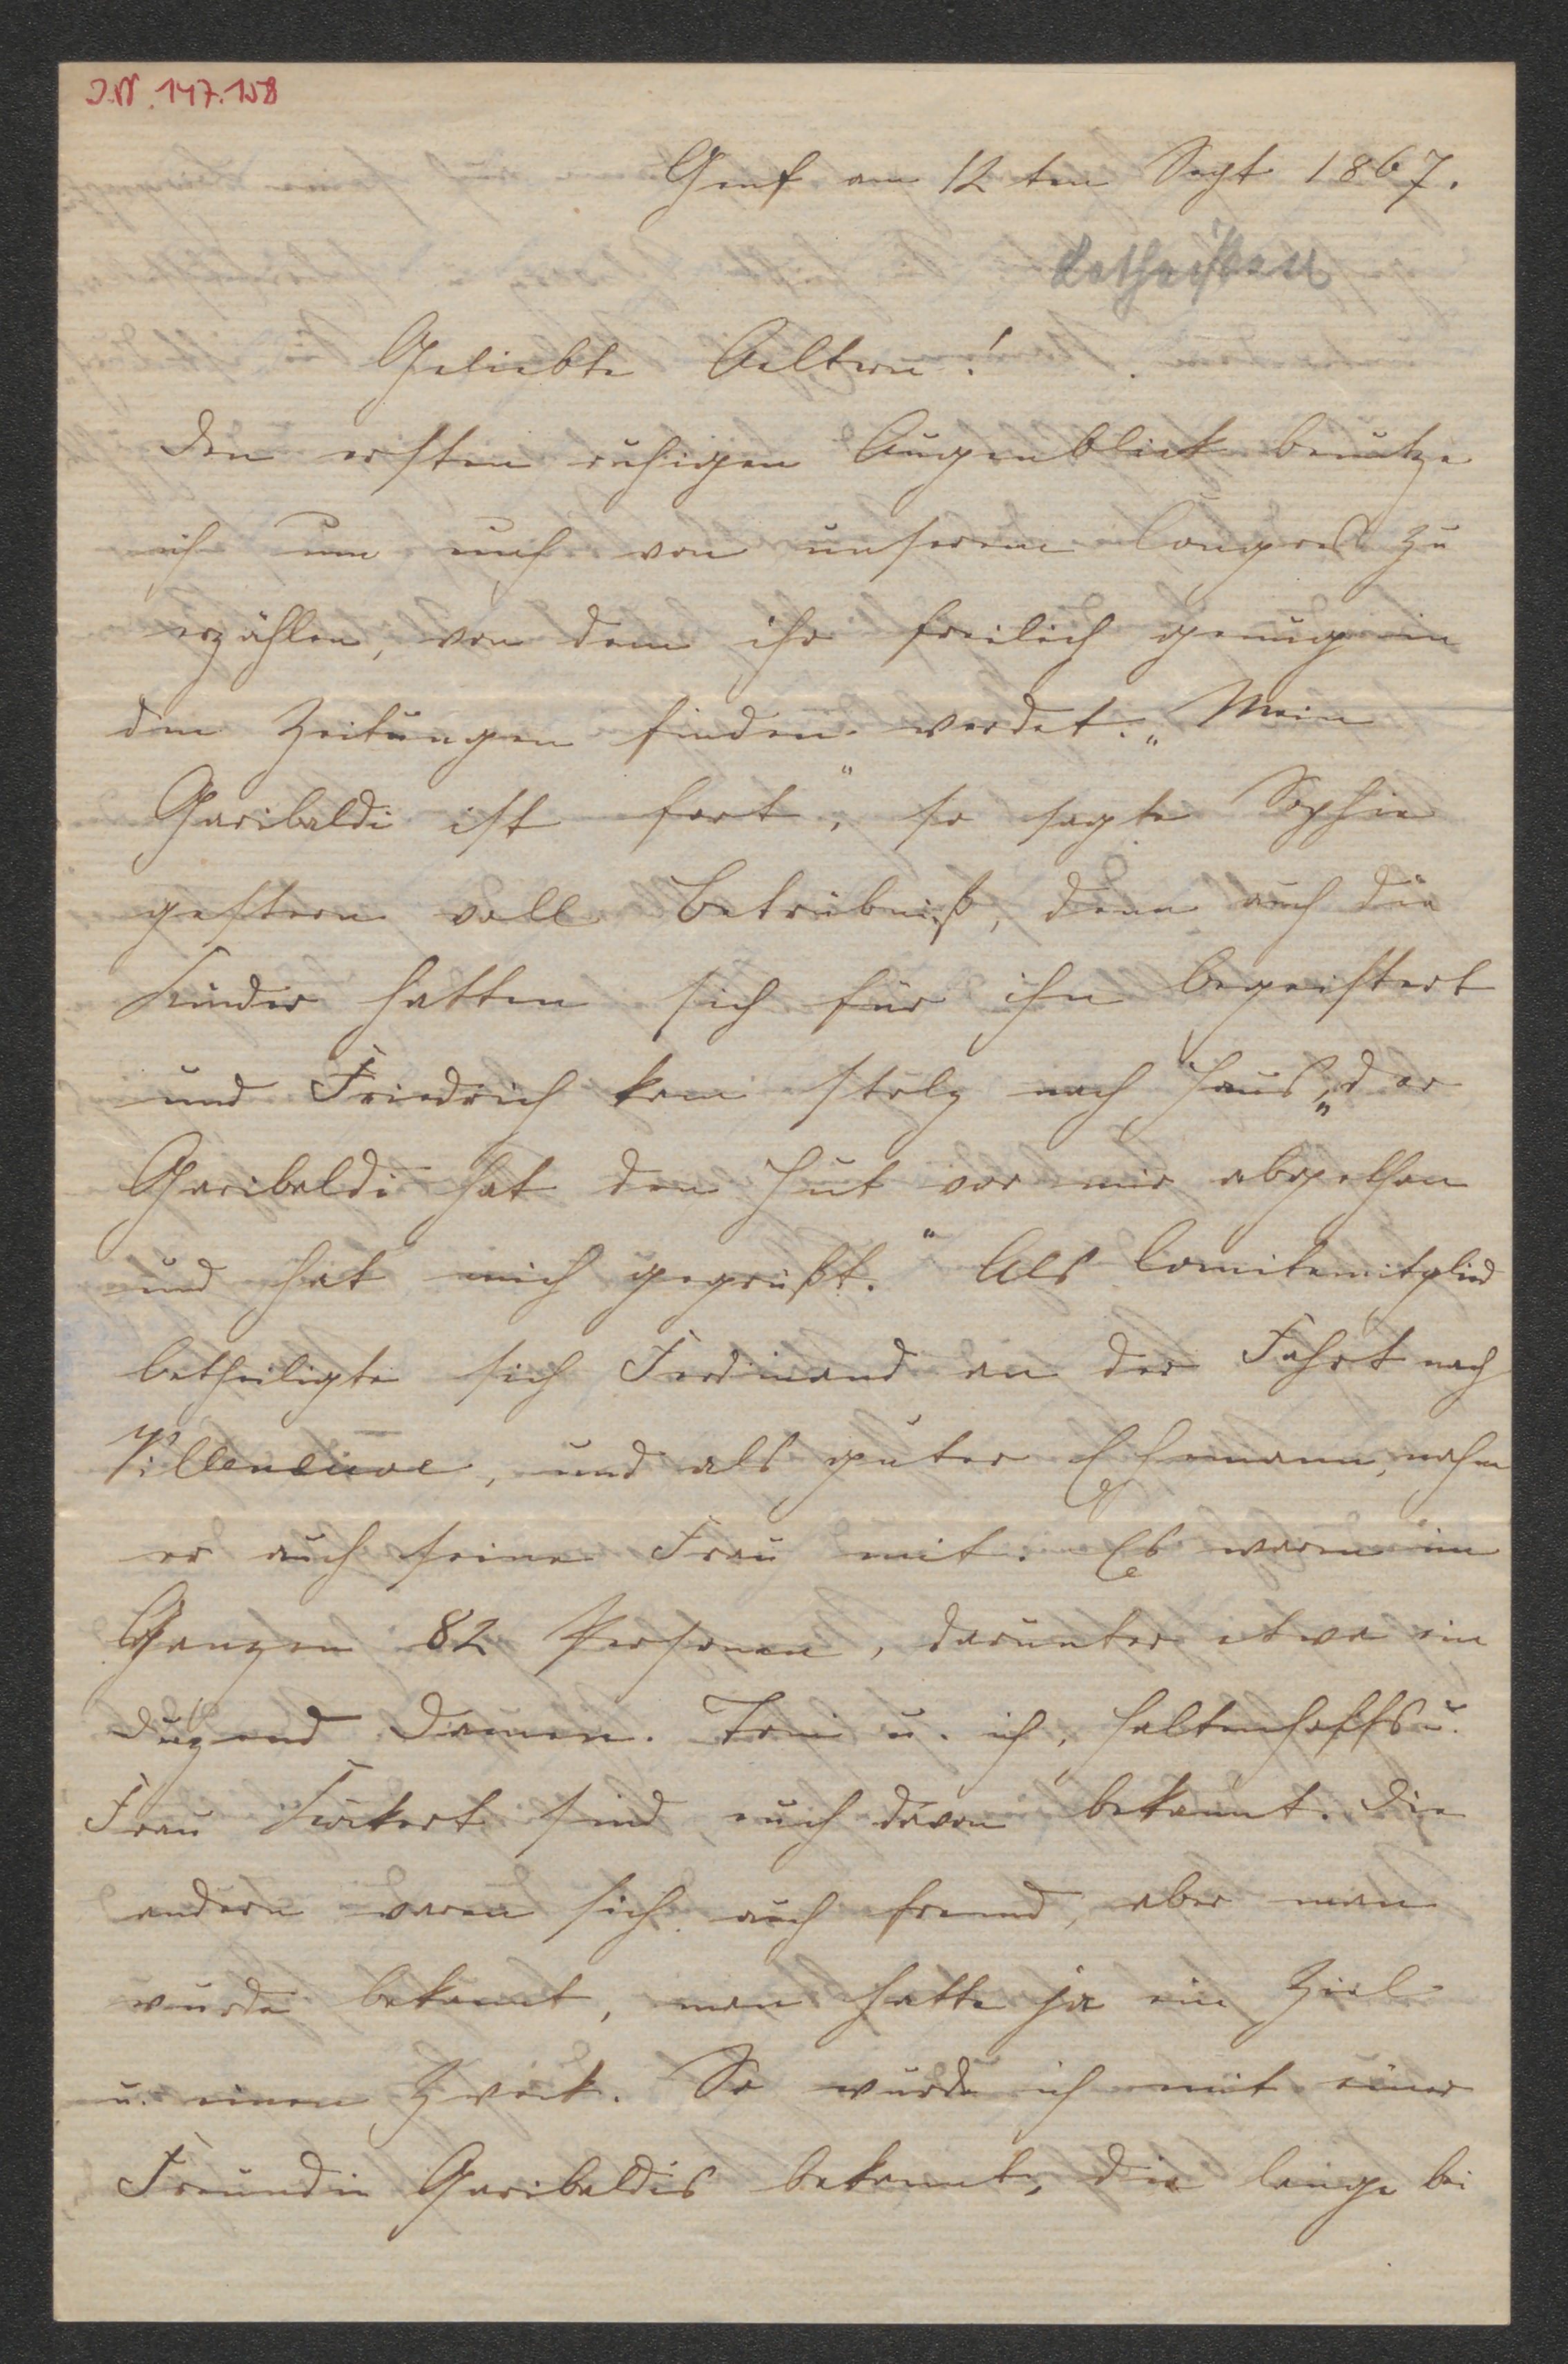 J.N. 147.158
Genf am 12 ten Sept 1867.
Geliebte Aeltern!
Den ersten ruhigen Augenblick benutze
ich um euch von unserem Congreß zu
erzählen, von dem ihr freilich genug in
den Zeitungen finden werdet. „Mein
Garibaldi ist fort", so sagte Sophie
gestern voll Betrübniß, denn auch die
Kinder hatten sich für ihn begeistert
und Friedrich kam stolz nach Haus, „der
Garibaldi hat den Hut vor mir abgethan
und hat mich gegrüßt." Als Comitemitglied
betheiligte sich Ferdinand an der Fahrt nach
Villeneuve, und als guter Ehemann, nahm
er auch seine Frau mit. Es waren im
Ganzen 82 Personen, darunter etwa ein
Duzend Damen. Toni u. ich, Haltenhoffs u.
Frau sind euch davon bekannt. Die
andern waren sich auch fremd, aber man
wurde bekannt, man hatte ja ein Ziel
u. einen Zweck. So wurde ich mit einer
Freundin Garibaldis bekannt, die lange bei